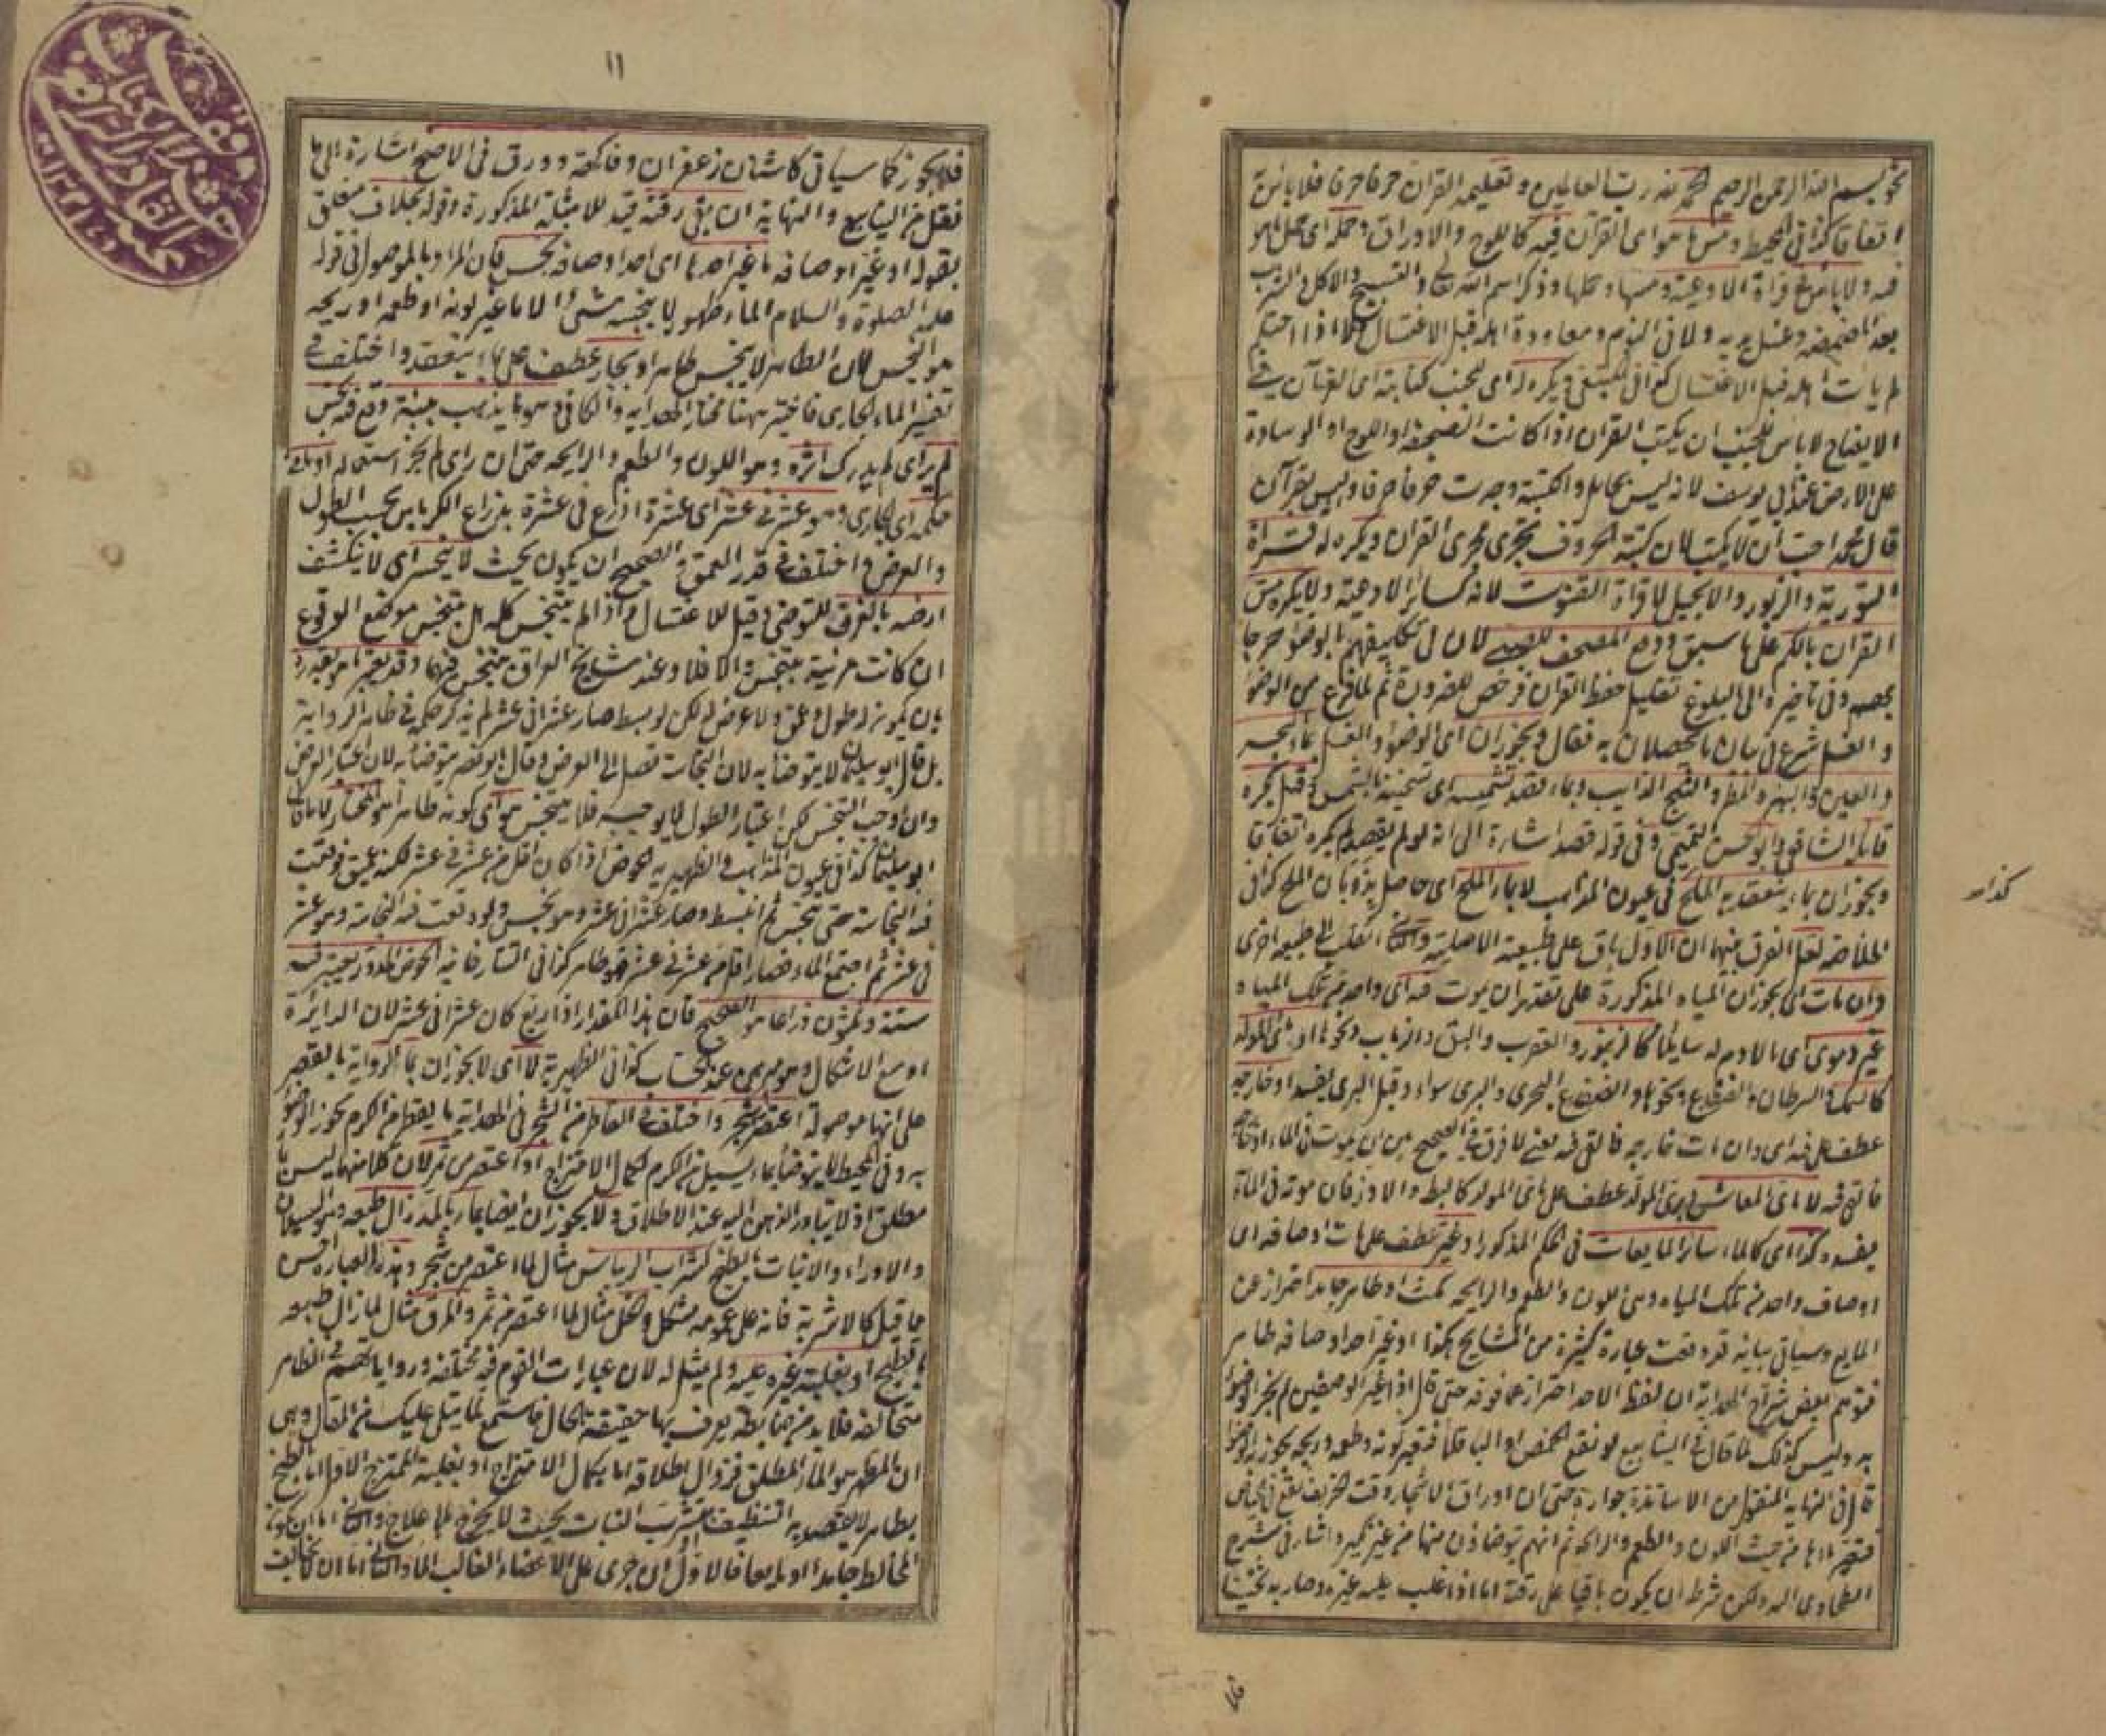 نحو بسم الله الرحمن الرحيم الحمد لله رب العالمين وتعليمه القران حرفا حرفا فلا بأس به
اتفاقا كذا في المحيط ومس ما هو اى القرآن فيه كاللوح والاوراق وحمله اى حمل ما هو
فيه ولا بأس في قراءة الادعية ومسها وحملها وذكر اسم الله تع والتسبيح والاكل والشرب
بعد المضمضة وغسل يديه ولا في النوم ومعاودة اهله قبل الاغتسال الا اذا احتلم
لم يات اهله قبل الاغتسال كذا في المبتغى ويكره له اى للجنب كتابته اى القرآن في
الايضاح لا بأس للجنب ان يكتب القران اذا كانت الصحيفة او اللوح او الوسادة
على الارض عند ابى يوسف لانه ليس بحامل والكتبة وجدت حرفا حرفا وليس بقرآن
قال محمد احب ان لا يكتب لان كتبة الحروف تجرى مجرى القران ويكره له قراءة
التورية والزبور والانجيل لا قراءة القنوت لانه كسائر الادعية ولا يكره مس
القران بالكم على ما سبق ودفع المصحف للصبى لان في تكليفهم بالوضوء حرجا
بهم وفى تاخيره الى البلوغ تقليل حفظ القران فرخص للضرورة ثم لما فرغ من الوضوء
والغسل شرع في بيان ما يحصلان به فقال ويجوزان اى الوضوء والغسل بماء البحر
والعين والبئر والمطر والثلج الذايب وبماء قصد تشميسه اى تسخينه بالشمس وقيل يكره
قاله الشافعى وابو الحسن التميمى وفى قوله قصد اشارة الى انه لو لم يقصد لم يكره اتفاقا
ويجوزان بماء ينعقد به الملح في عيون المذاهب لا بماء الملح اى حاصل بذوبان الملح كذا في
الخلاصة لعل الفرق بينهما ان الاول باق على طبيعته الاصلية والثانى انقلب الى طبيعة اخرى
وان مات اى يجوزان بالمياه المذكورة على تقدير ان يموت فيه اى واحد من تلك المياه
غير دموى اى ما لا دم له سايلا كالزنبور والعقرب والبق والذباب ونحوها او مائى المولد
كالسمك والسرطان والضفدع ونحوها والضفدع البحرى والبرى سواء وقيل البرى يفسد او خارجه
عطف على فيه اى وان مات خارجه فالقى فيه يعنى لا فرق في الصحيح بين ان يموت في الماء او خارجه
فالقى فيه لا مائى المعاش برى المولد عطف على مائى المولد كالبط والاوز فان موته في الماء
يفسده كذا اى كالماء سائر المايعات في الحكم المذكور او غير عطف على مات اوصافه اى
اوصاف واحد من تلك المياه وهى اللون والطعم والرايحة مكث او طاهر جامد احتراز عن
المايع وسياتى بيانه قد وقعت عبارة كثيرة من المشايخ هكذا او غير احد اوصافه طاهر
فتوهم بعض شراح الهداية ان لفظ الاحد احتراز عما فوقه حتى قال اذا غير الوصفين لم يجز الوضوء
به وليس كذلك لما قال في الينابيع لو نقع الحمص او الباقلاء فتغير لونه وطعمه وريحه يجوز به الوضوء
قال في النهاية المنقول من الاساتذة جوازه حتى ان اوراق الاشجار وقت الخريف تقع في الحياض
فتغير ماءها من حيث اللون والطعم والرائحة ثم انهم يتوضأون منها من غير نكير واشار في شرح
الطحاوى اليه ولكن شرط ان يكون باقيا على رقته اما اذا غلب عليه غيره وصار به ثخينا
فلا
١١
فلا يجوز كما سياتى كاشنان وزعفران وفاكهة وورق في الاصح اشارة الى ما
نقل من الينابيع والنهاية ان بقى رقته قيد للامثلة المذكورة وقوله بخلاف متعلق
بقوله او غير اوصافه ما غير احدها اى احد اوصافه نجس فان المراد بالموصول في قوله
عليه الصلوة والسلام الماء طهور لا ينجسه شئ الا ما غير لونه او طعمه او ريحه
هو النجس لان الطاهر لا ينجس طاهرا وبجار عطف على بماء ينعقد واختلف في
تفسير الماء الجارى فاختير ههنا مختار الهداية والكافى وهو ما يذهب بتبنة وقع فيه نجس
لم ير اى لم يدرك اثره وهو اللون والطعم والرايحة حتى ان راى لم يجز استعماله او ما في
حكمه اى الجارى وهو عشر في عشر اى عشرة اذرع في عشرة بذراع الكرباس بحسب الطول
والعرض واختلف في قدر العمق والصحيح ان يكون بحيث لا ينحسر اى لا ينكشف
ارضه بالغرف للتوضى وقيل للاغتسال واذا لم يتنجس كله هل يتنجس موضع الوقوع
ان كانت مرئية يتنجس والا فلا وعند مشايخ العراق يتنجس فيهما وقد يعتبر امر تقديره
بان يكون له طول وعمق ولا عرض له لكن لو بسط صار عشرا في عشر لم يذكر حكمه في ظاهر الرواية
بل قال ابو سليمان لا يتوضأ به لان النجاسة تصل الى العرض وقال ابو نصر يتوضأ به لان اعتبار العرض
وان اوجب التنجس لكن اعتبار الطول لا يوجبه فلا يتنجس هو اى كونه طاهرا هو المختار لا ما قال
ابو سليمان كذا في عيون المذاهب والظهيرية الحوض اذا كان اقل من عشر في عشر لكنه عميق فوقعت
فيه النجاسة حتى تنجس ثم انبسط وصار عشرا في عشر فهو نجس ولو وقعت فيه النجاسة وهو عشر
في عشر ثم اجتمع الماء فصار اقل من عشر في عشر فهو طاهر كذا في التتارخانية الحوض المدور يعتبر فيه
ستة وثلثون ذراعا هو الصحيح فان هذا المقدار اذا ربع كان عشرا في عشر لان الدائرة
اوسع الاشكال وهو مبرهن عند الحساب كذا في الظهيرية لا اى لا يجوزان بما الرواية بالقصر
على انها موصولة اعتصر من شجر واختلف في القاطر من الشجر في الهداية ما يقطر من الكرم يجوز الوضوء
به وفى المحيط لا يتوضأ بماء يسيل من الكرم لكمال الامتزاج او اعتصر من ثمر لان كلا منهما ليس بماء
مطلق اذ لا يتبادر الذهن اليه عند الاطلاق ولا يجوزان ايضا بماء بالمد زال طبعه وهو السيلان
والارواء والانبات بالطبخ كشراب الريباس مثال لما اعتصر من شجر وهذه العبارة احسن
مما قيل كالاشربة فانه على عمومه مشكل والخل مثال لما اعتصر من ثمر والمرق مثال لما زال طبعه
بالطبخ او بغلبة غيره عليه ولم يمثل له لان عبارات القوم فيه مختلفة ورواياتهم في الظاهر
متخالفة فلا بد من ضابطة يعرف بها حقيقة الحال فاستمع لما يتلى عليك من المقال وهى
ان المطهر هو الماء المطلق فزوال اطلاقه اما بكمال الامتزاج او بغلبة الممتزج الاول اما بالطبخ
بطاهر لا يقصد به التنظيف او بتشرب النبات بحيث لا يخرج بلا علاج والثانى اما ان يكون
المخالط جامدا او مايعا فالاول ان جرى على الاعضاء الغالب الماء والثانى اما ان يخالف